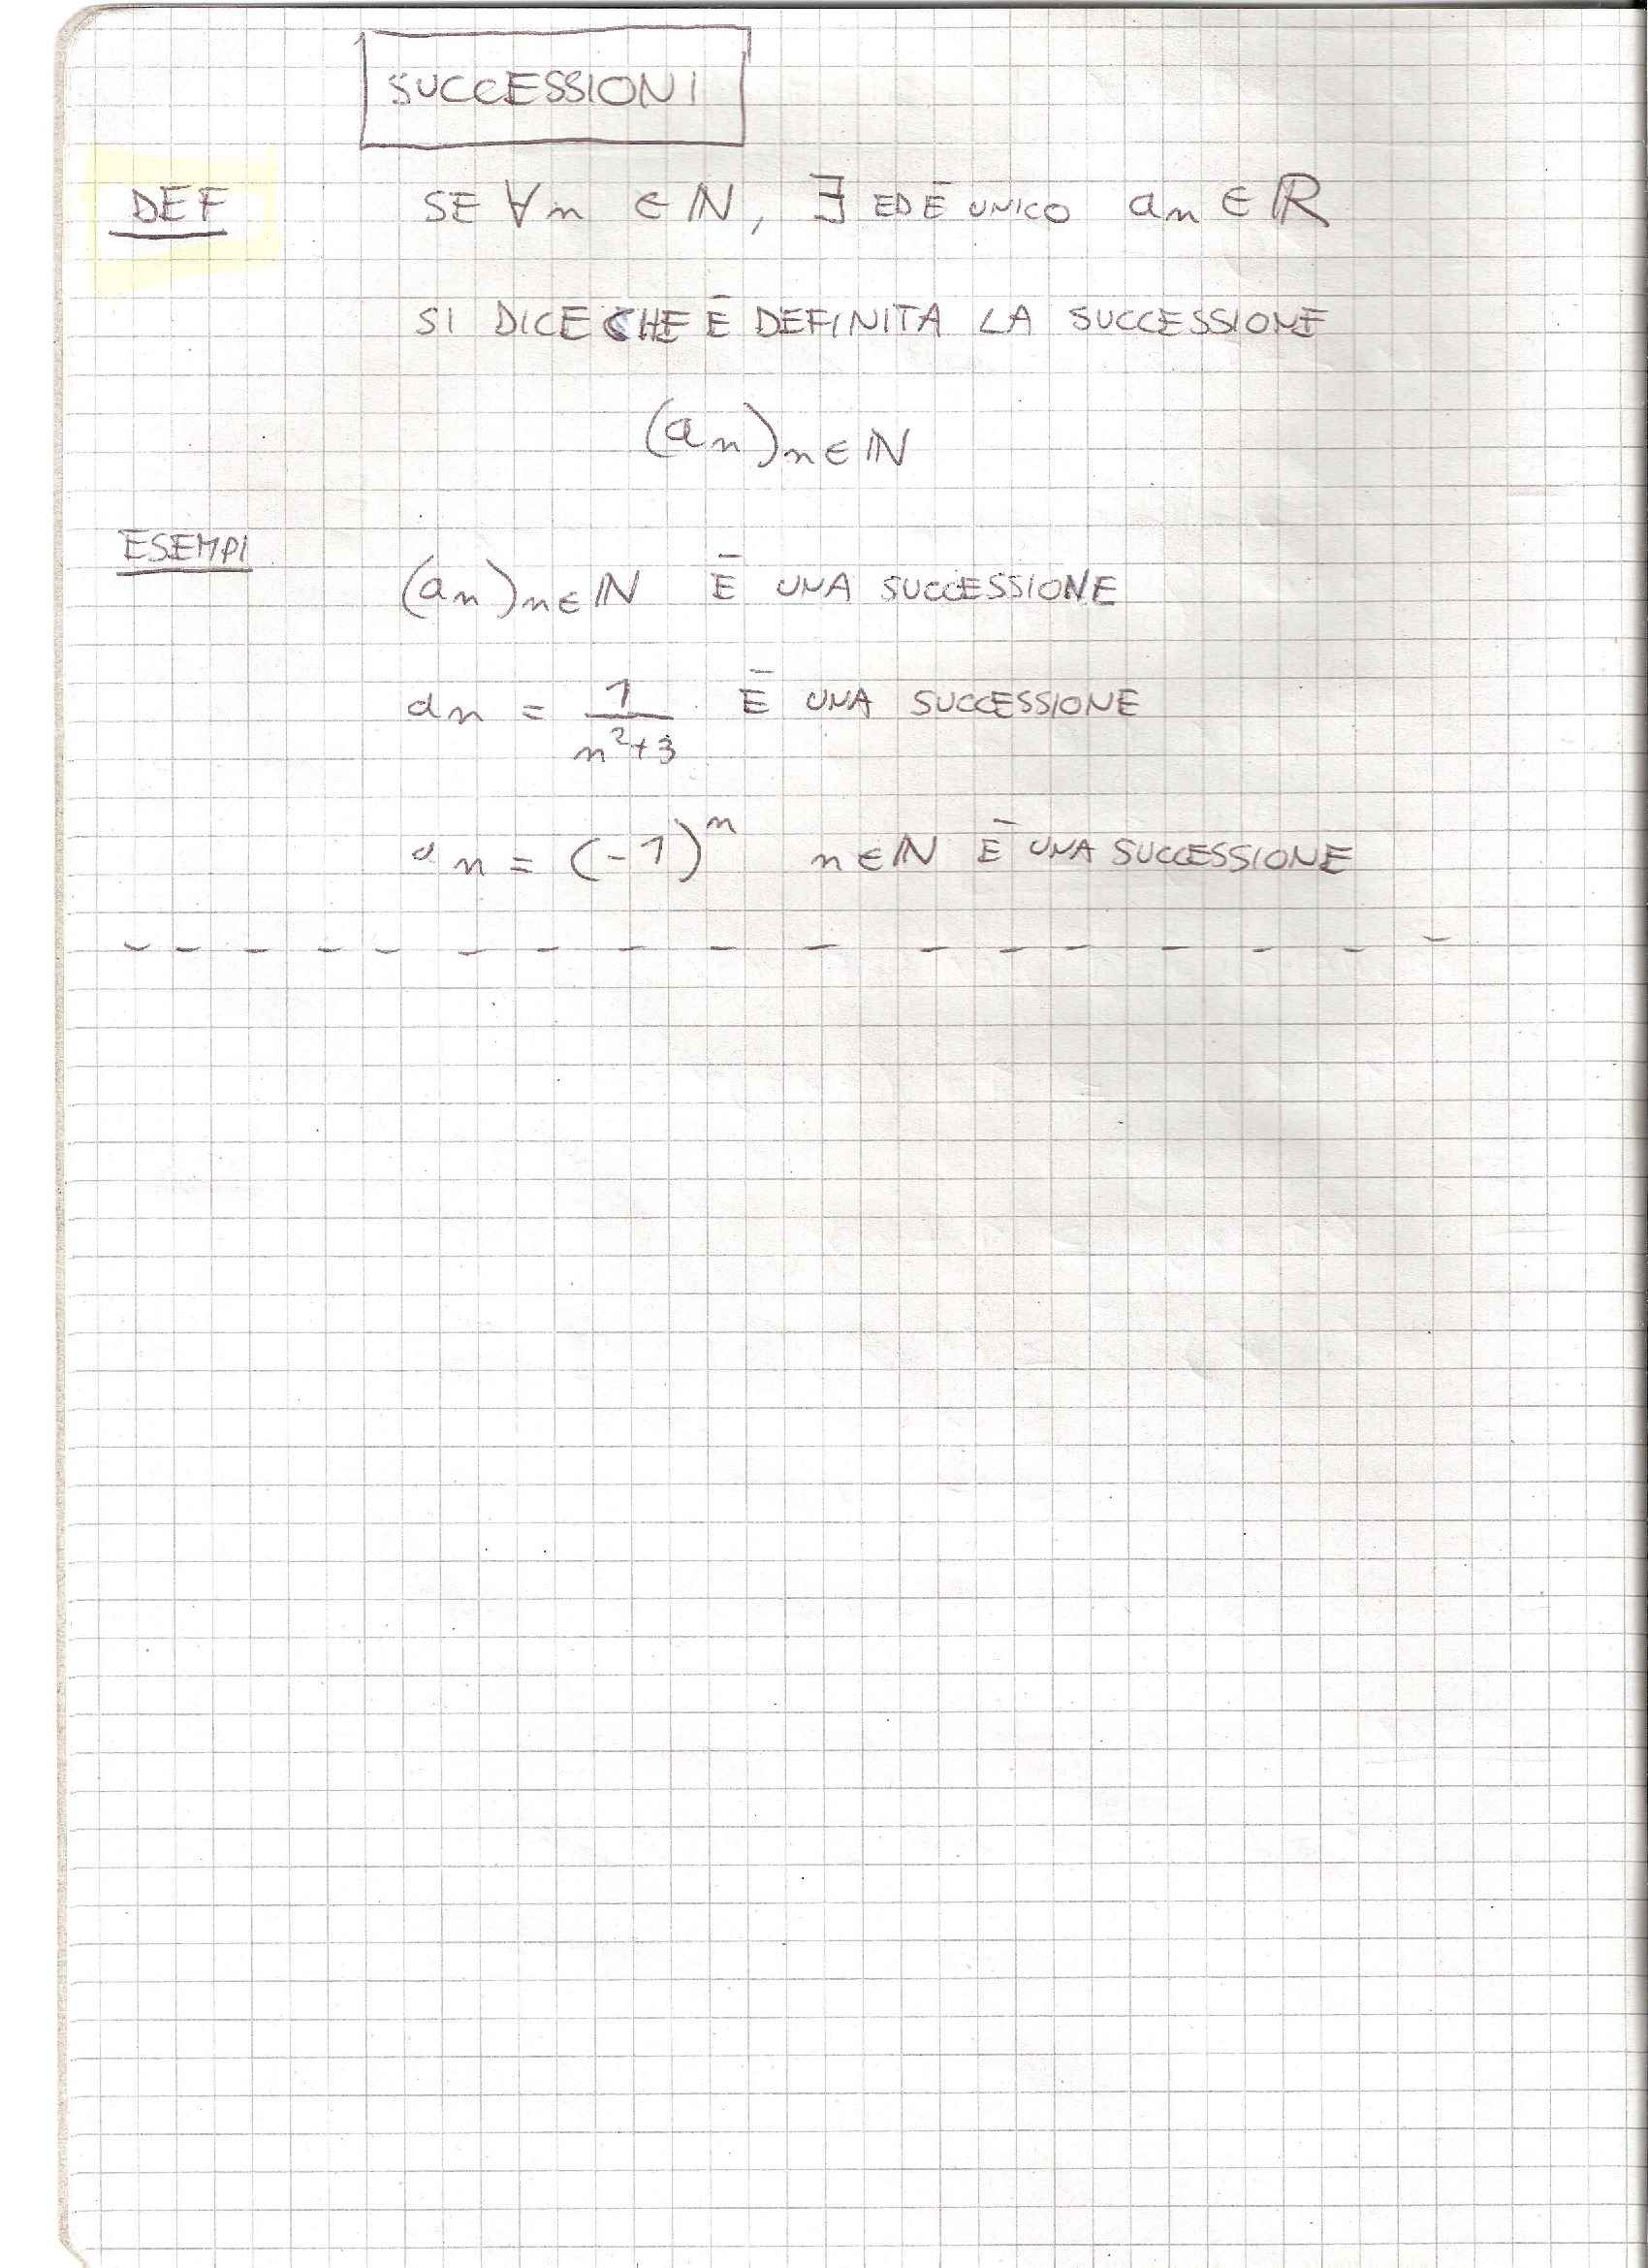 SUCCESSIONI
DEF SE ∀n ∈ ℕ, ∃ ED Ē UNICO an ∈ ℝ
SI DICE CHE Ē DEFINITA LA SUCCESSIONE
(an)n∈ℕ
ESEMPI
(an)n∈ℕ Ē UNA SUCCESSIONE
an = 1/(n²+3) Ē UNA SUCCESSIONE
an = (-1)ⁿ n∈ℕ Ē UNA SUCCESSIONE